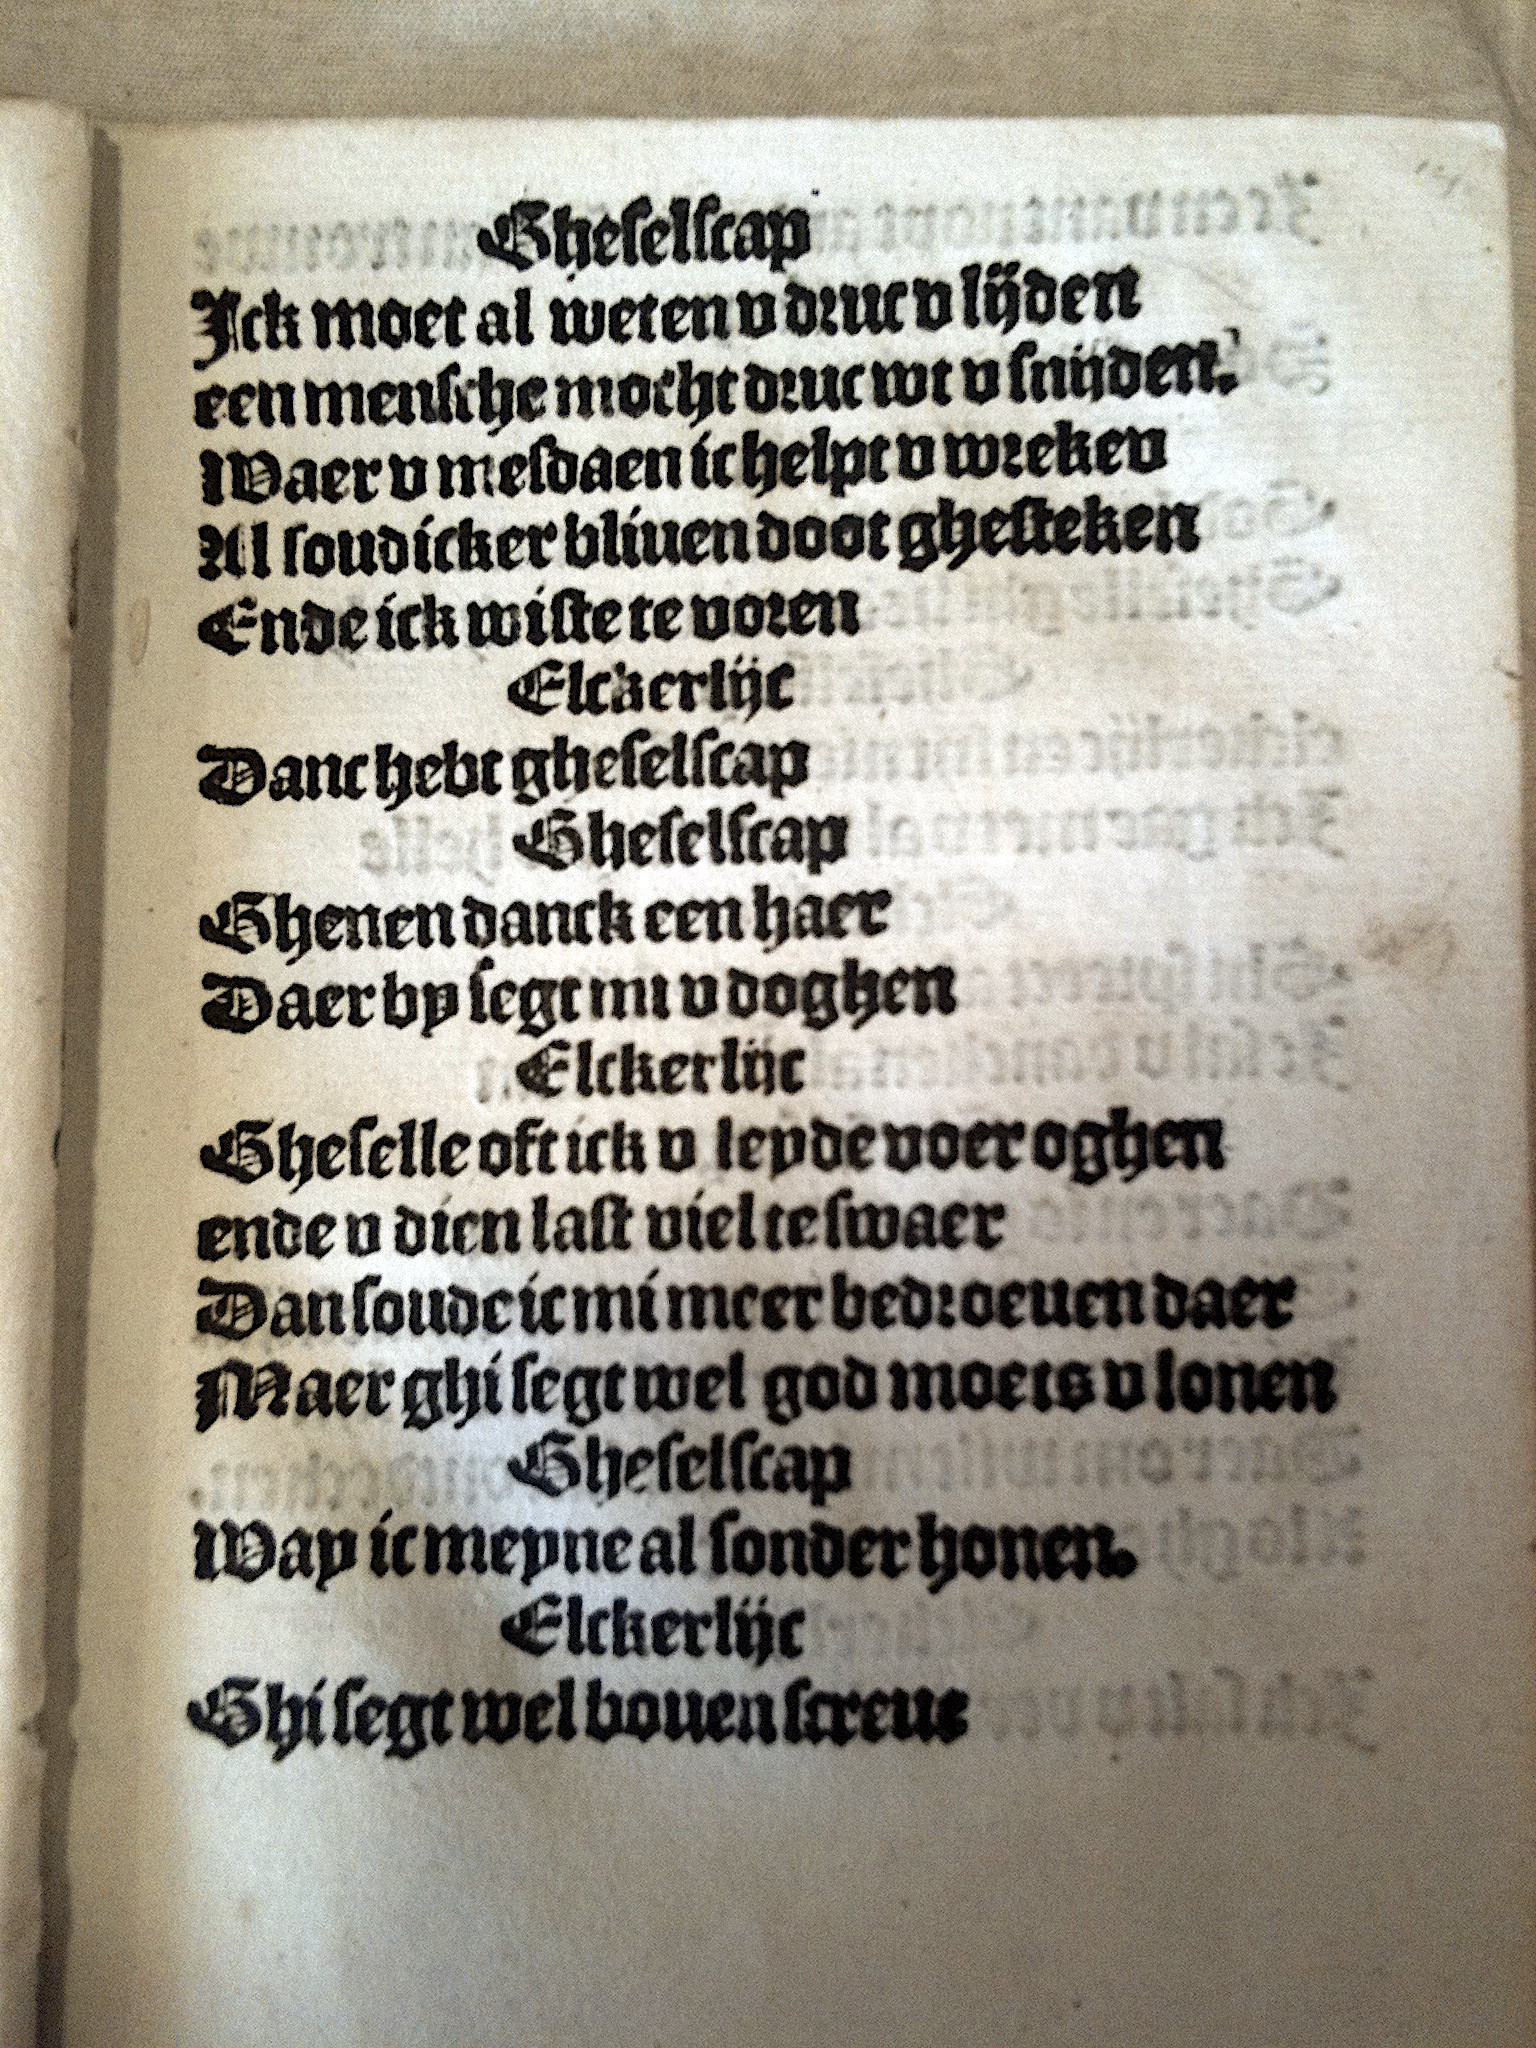 Gheselscap
Ick moet al weten v druc v lijden
een mensche mocht druc wt v snijden.
Waer v mesdaen ic helpt v wreken
Al soud icker bliuen doot ghesteken
Ende ick wiste te voren
Elckerlijc
Danc hebt gheselscap
Gheselscap
Ghenen danck een haer
Daer by segt mi v doghen
Elckerlijc
Gheselle oft ick v leyde voer oghen
ende v dien last viel te swaer
Dan soude ic mi meer bedroeuen daer
Maer ghi segt wel god moets v lonen
Gheselscap
Way ic meyne al sonder honen.
Elckerlijc
Ghi segt wel bouen screue